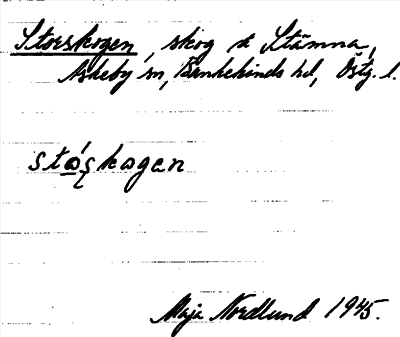 Storskogen, skog å Stämna,
Askeby sn, Bankekinds hd, Östg. l.
sto̲´ʂkogen
Maja Nordlund 1945.